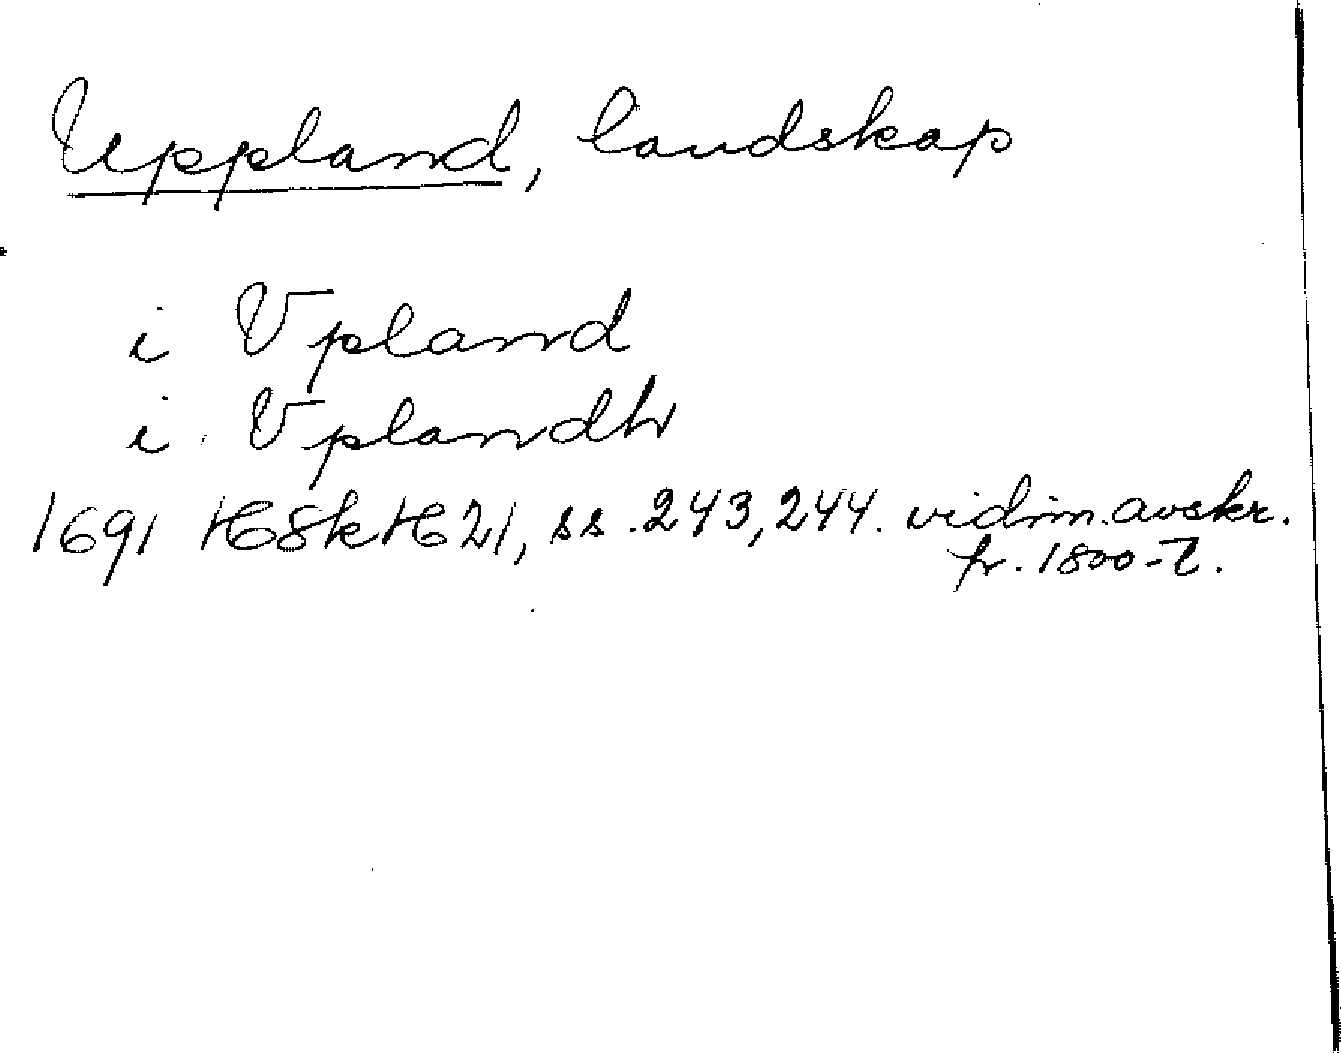 Uppland, landskap
i Vpland
i Vplandh
1691 HSkH 21, ss. 243, 244. vidim. avskr.
fr. 1800-t.